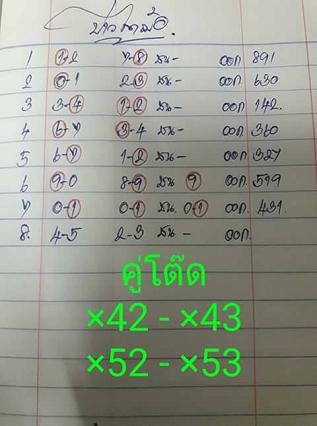 1 1-2 7-8 ชน- ออก 891
2 0-1 2-3 ชน- ออก 630
3 3-4 1-2 ชน- ออก 142.
4 6-7 3-4 ชน- ออก 360
5 6-7 1-2 ชน- ออก 327
6 9-0 8-9 ชน 9 ออก. 599
7 0-1 0-1 ชน. 0-1 ออก. 431.
8. 4-5 2-3 ชน- ออก.
คู่โต๊ด
×42 - ×43
×52 - ×53